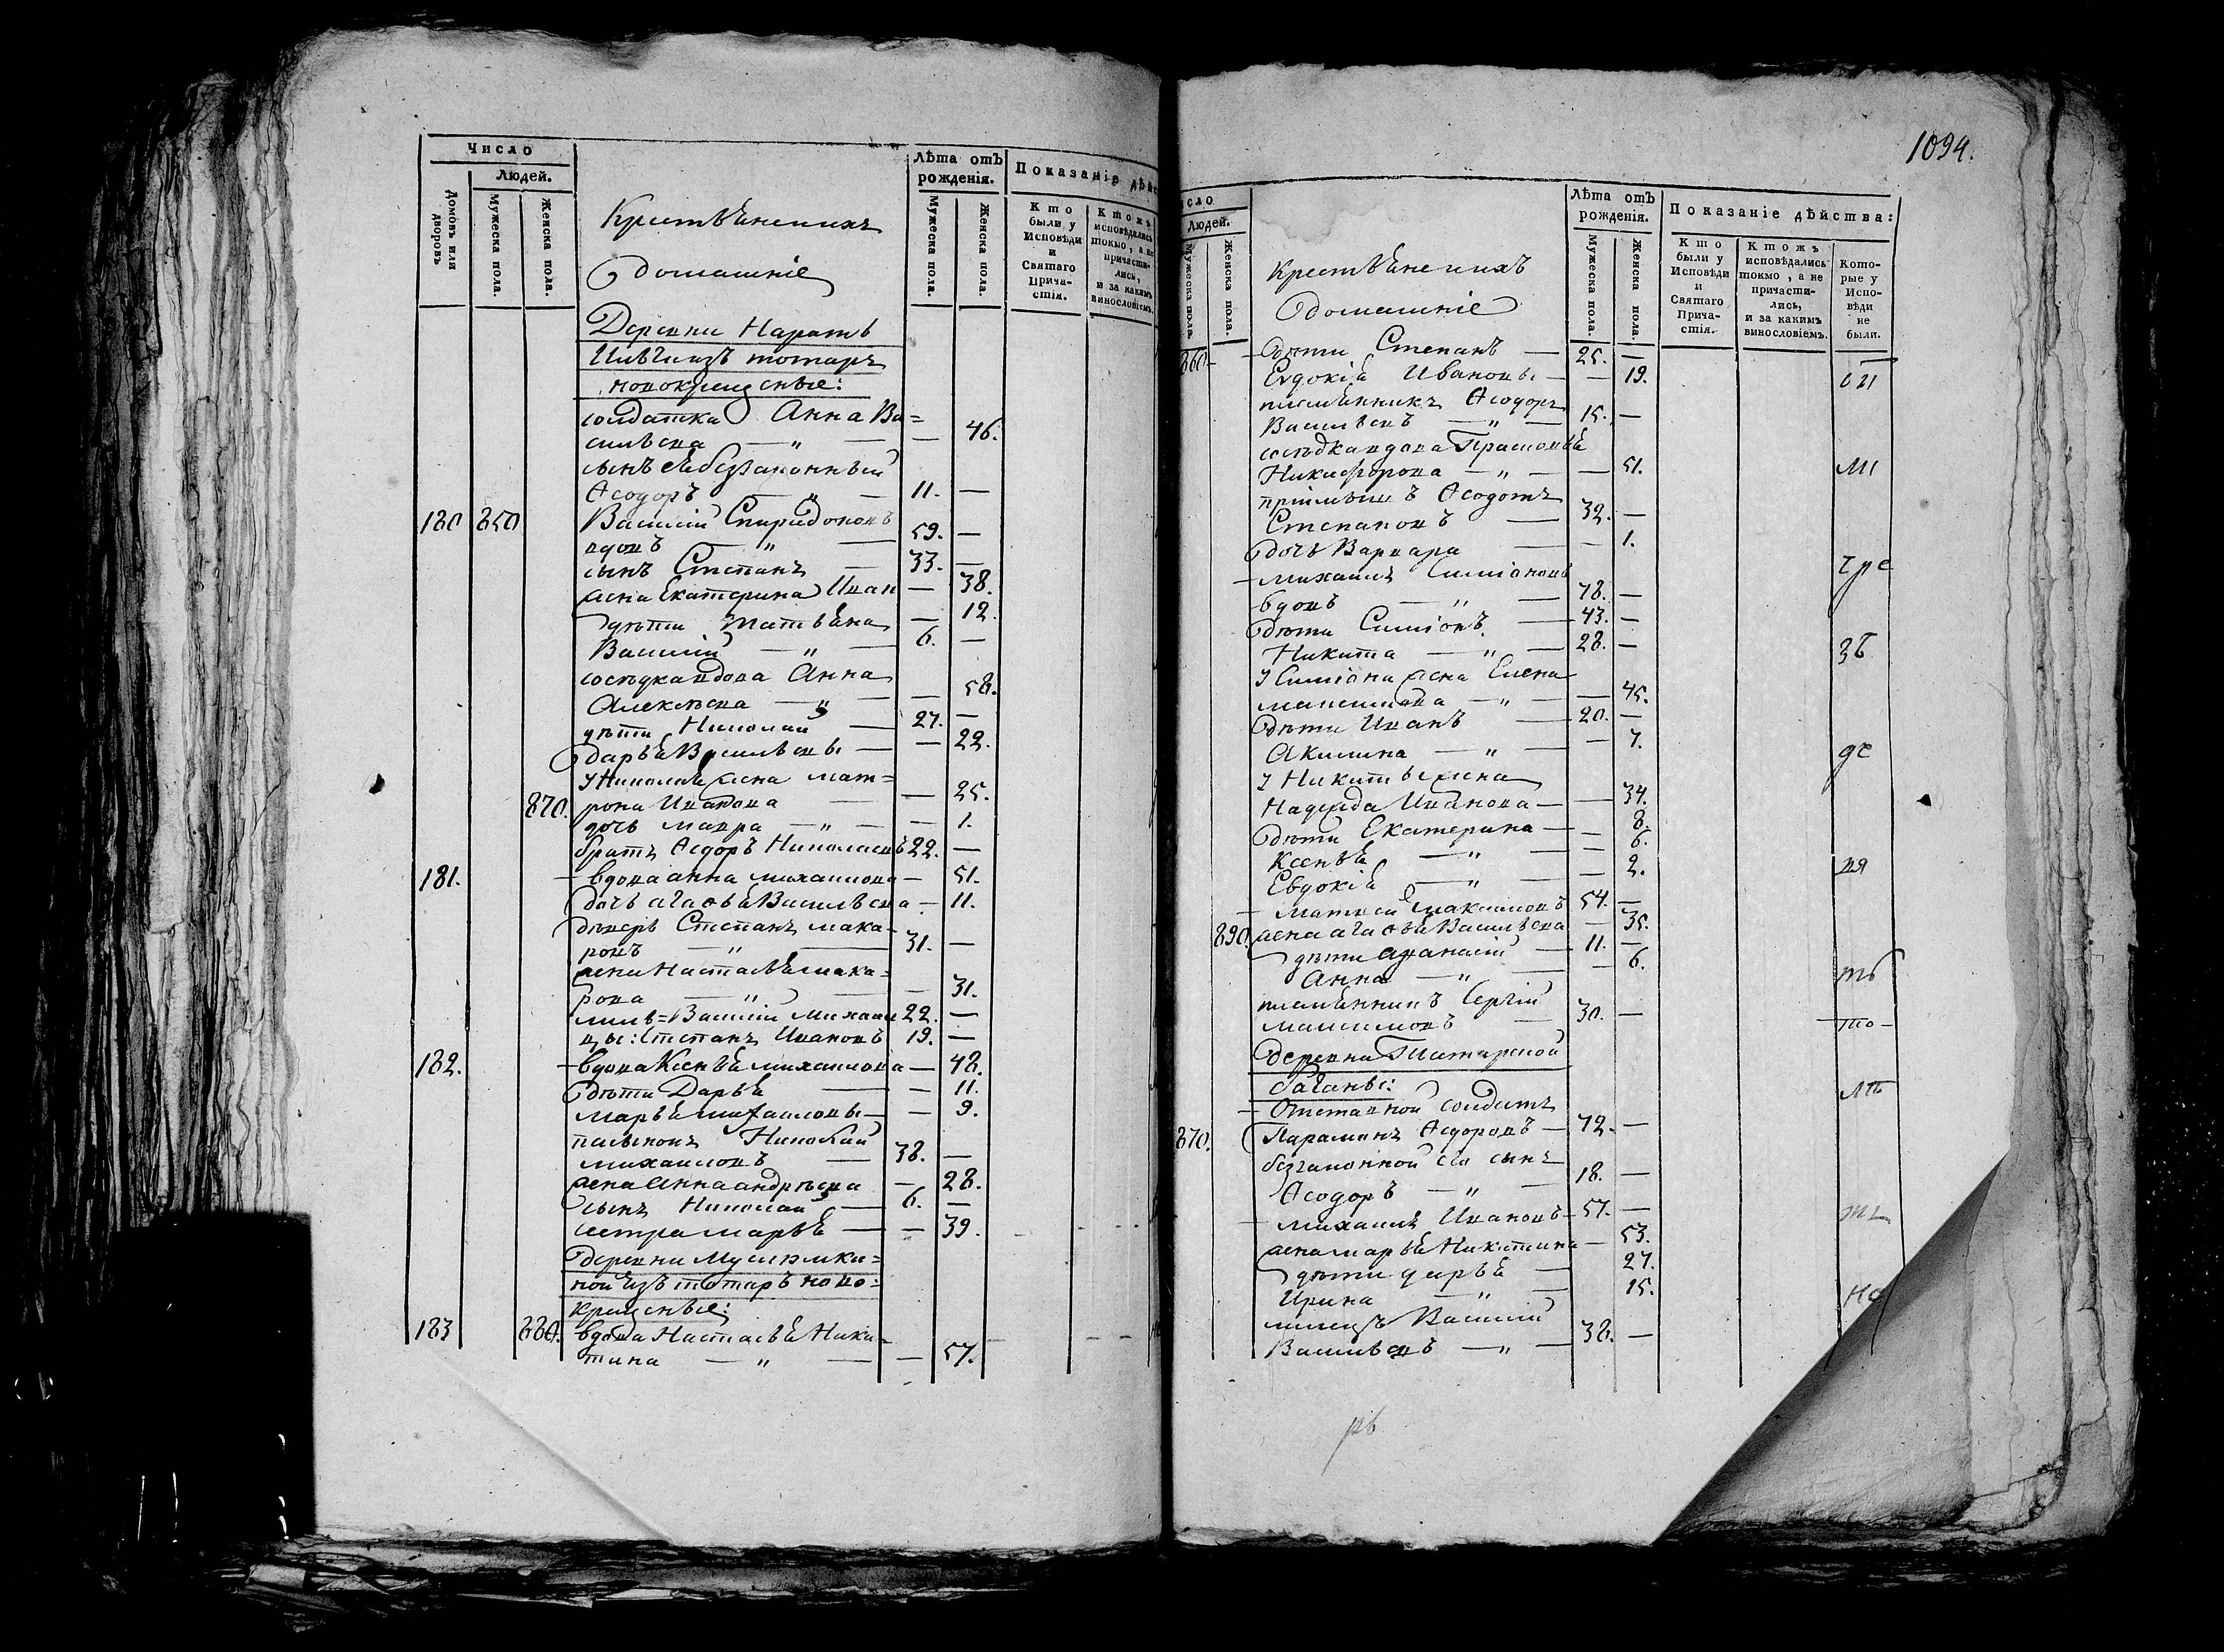 Число
Людей.
Домовъ или дворовъ
Мужеска пола.
Женска пола.
Лѣта отъ рожденія.
Мужеска пола.
Женска пола.
Показаніе дѣйс
Кто были у Исповѣди и Святаго Прича- стія.
Ктожъ исповѣдались токмо, а не причасти- лись, и за какимъ винословіемъ.
Крестьянскихъ
Домашніе
Деревни
тотаръ
новокрещеные:
солдатка Анна Ва=
сильева — „ — — 46.
сынъ ея беззаконный
Ѳеодоръ — „ — 11. —
180 850 Василій Спиридоновъ
вдовъ — „ — 59. —
сынъ Степанъ — 33. —
жена Екатерина Иван — 38.
дѣти Татьяна — 12.
Василій — „ — 6. —
сосѣдка вдова Анна
Алексѣева — „ — — 58.
дѣти Николай — 27. —
Дарья Васильевы — — 22.
У Николая жена Мат=
870. рона Иванова — — 25.
дочь Мавра — „ — — 1.
братъ Ѳедоръ Николаевъ 22. —
181. — вдова Анна Михаилова — 51.
дочь Агаѳья Васильева — 11.
Степанъ Мака=
ровъ — „ — 31. —
жена Настасья Мака=
рова — „ — — 31.
жиль= Василій Михаил 22. —
цы: Степанъ Ивановъ 19. —
182. — вдова Ксенья Михаилова — 48.
дѣти Дарья — — 11.
Марья Михаиловы — — 9.
пасынокъ Николай
Михаиловъ — 38. —
жена Анна Андрѣева — 28.
сынъ Николай — 6. —
сестра Марья — — 39.
деревни
ной изъ тотаръ ново=
крещеные:
183 880. вдова Настасья Ники=
тина — „ — — 57.
1094.
сло
Людей.
Мужеска пола.
Женска пола.
Лѣта отъ рожденія.
Мужеска пола.
Женска пола.
Показаніе дѣйства:
Кто были у Исповѣди и Святаго Прича- стія.
Ктожъ исповѣдались токмо, а не причасти- лись, и за какимъ винословіемъ.
Кото- рые у Испо- вѣди не были.
Крестьянскихъ
Домашніе
860 — дѣти Степанъ — 25. —
Евдокія Ивановы — — 19.
племянникъ Ѳеодоръ
Васильевъ — „ — 15. —
сосѣдка вдова Прасковья
Никифорова — „ — — 51.
пріимышъ Ѳеодотъ
Степановъ — 32. —
дочь Варвара — — 1.
— Михаилъ Симіоновъ
вдовъ — „ — 78. —
дѣти Симіонъ — 43. —
Никита — „ — 28. —
У Симіона жена Елена
Максимова — „ — — 45.
дѣти Иванъ — 20. —
Акилина — „ — — 7.
У Никиты жена
Надежда Иванова — — 34.
дѣти Екатерина — — 8.
Ксенья — „ — — 6.
Евдокія — „ — — 2.
— Матвей Максимовъ 54. —
890. жена Агаѳья Васильева — 35.
дѣти Афанасій — 11. —
Анна — „ — — 6.
племянникъ Сергій
Максимовъ — 30. —
деревни Татарской
— Отставной солдатъ
870. Парамонъ Ѳедоровъ — 72. —
беззаконной его сынъ
Ѳеодоръ — „ — 18. —
— Михаилъ Ивановъ — 57. —
жена Марья Никитина — 53.
дѣти Дарья — 27.
Ирина — „ — 15.
жилецъ Василій
Васильевъ — „ — 38. —